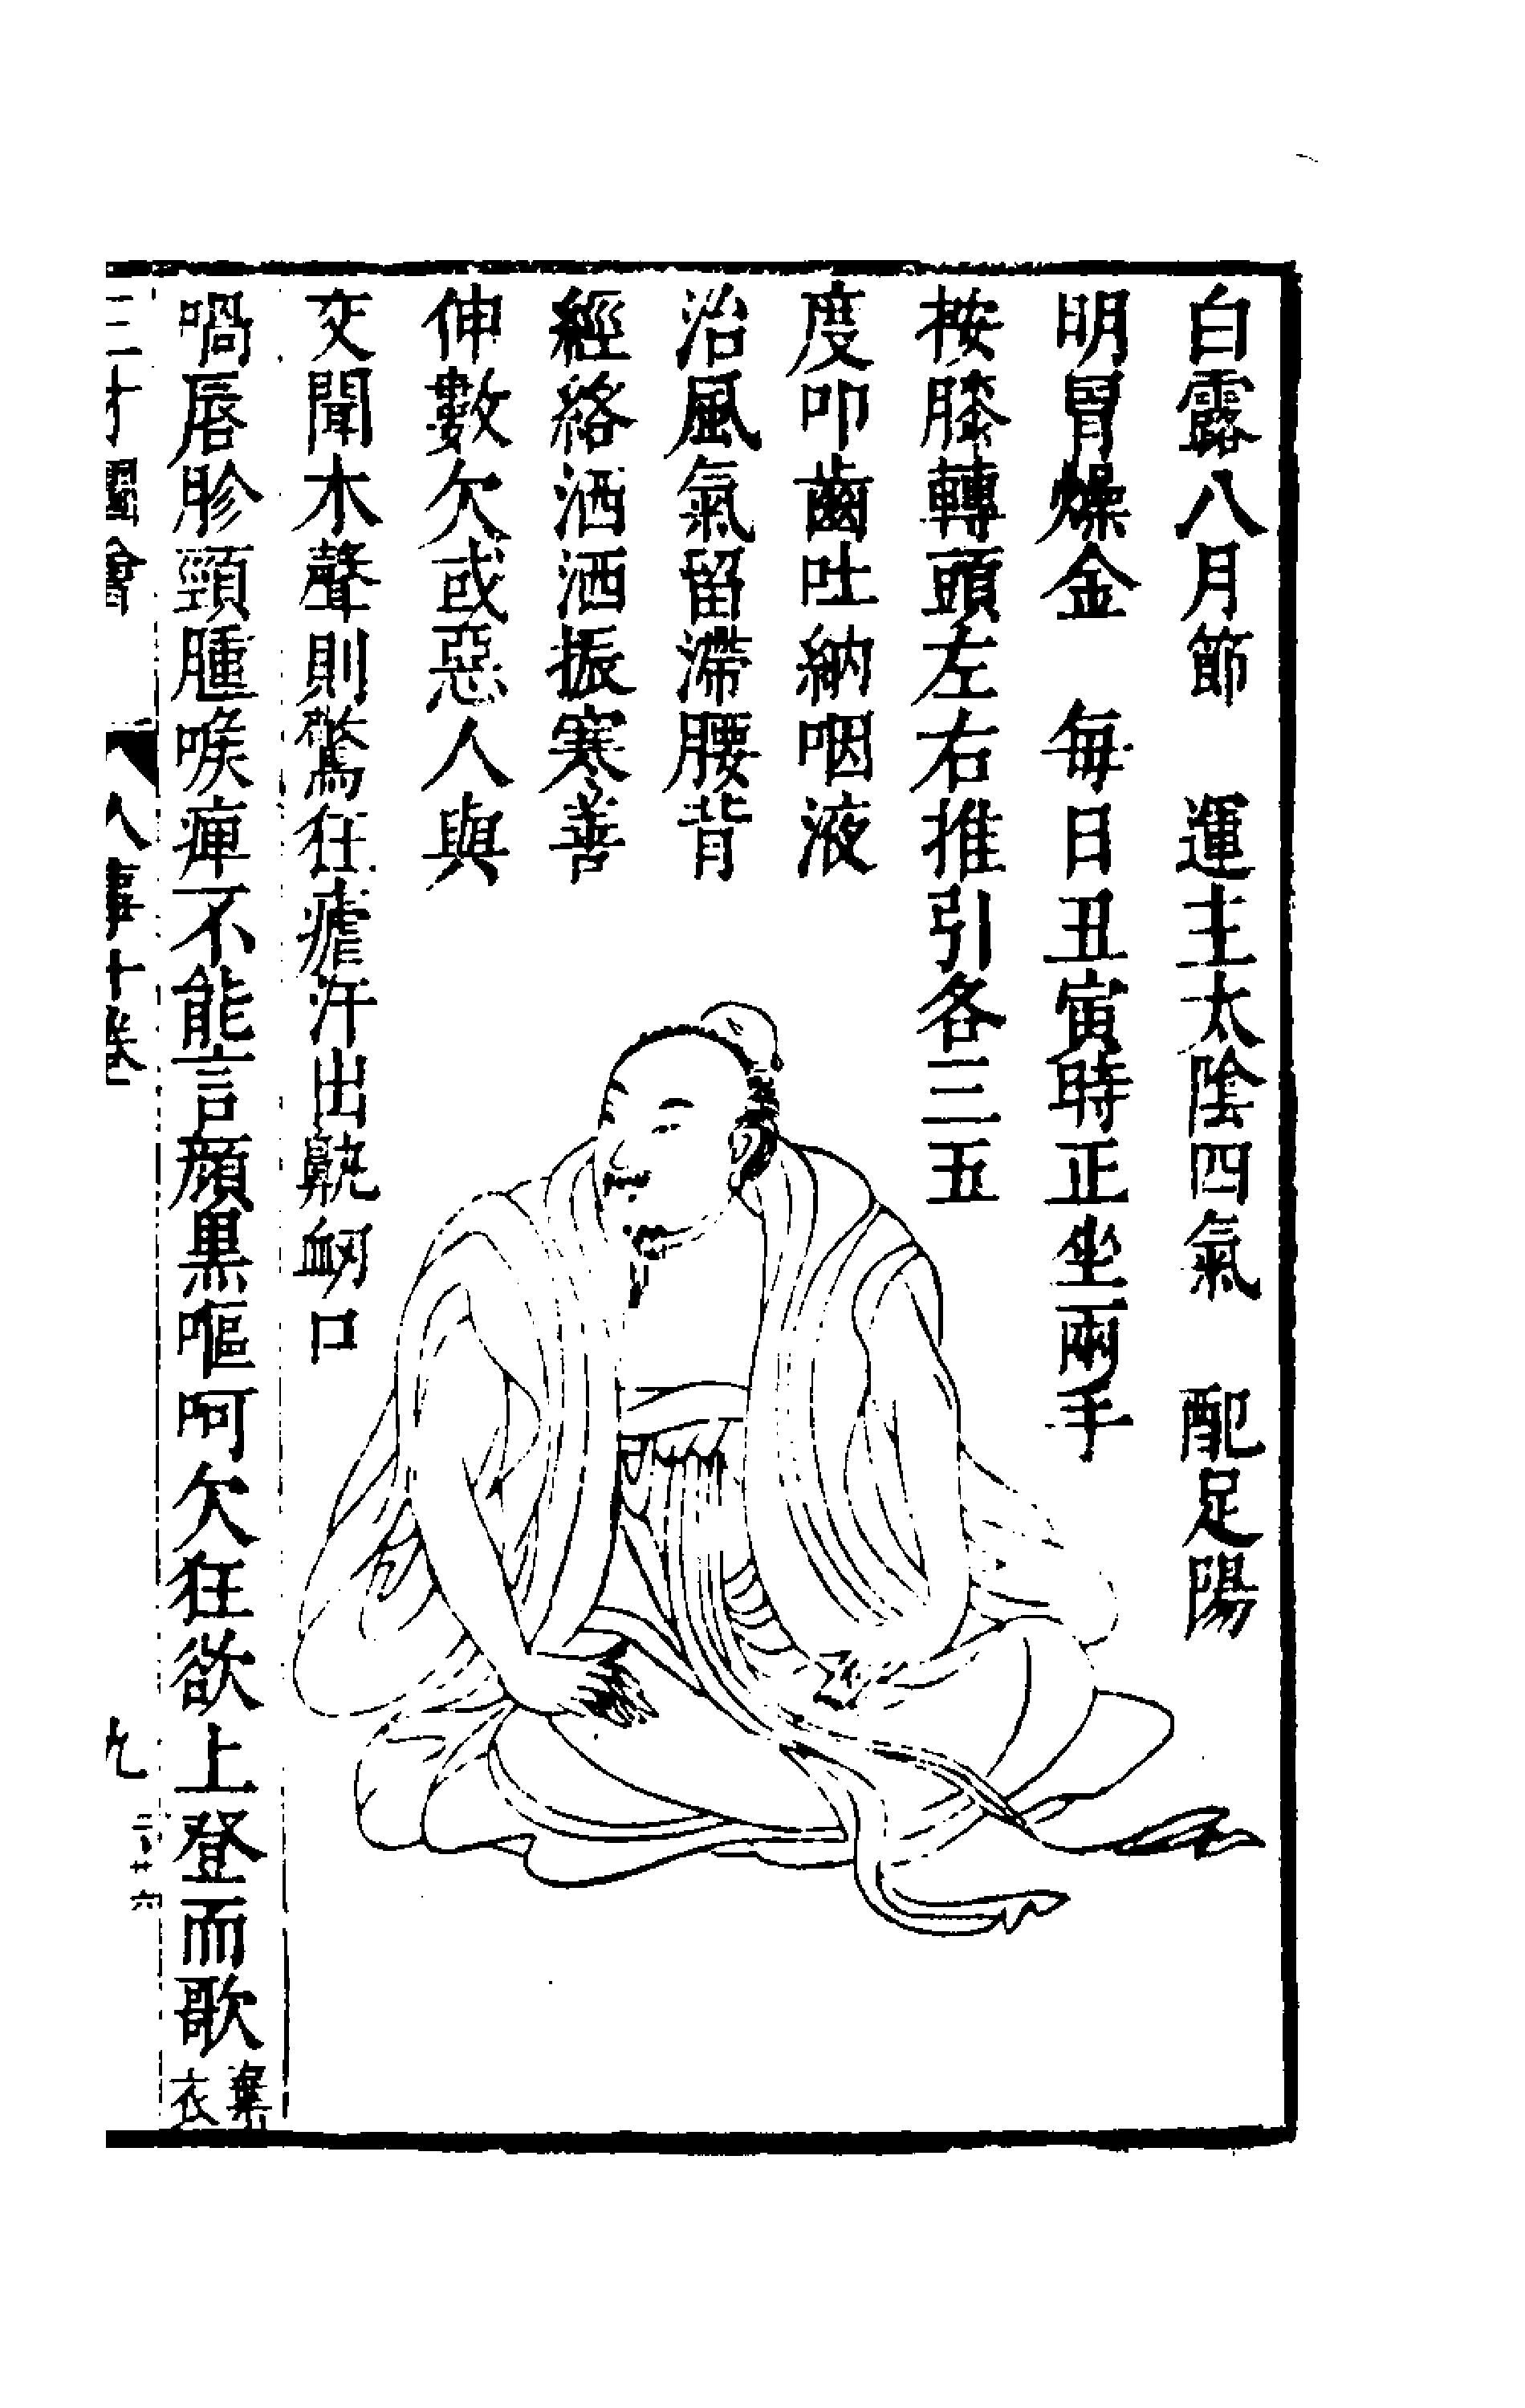 白露八月節　運主太陰四氣　配足陽
明胃燥金　每日丑寅時正坐兩手
按膝轉頭左右推引各三五
度叩齒吐納咽液
治風氣留滯腰背
經絡洒洒振寒善
伸數欠或惡人與
火聞木聲則驚狂瘧汗出鼽衂口
喎唇胗頸腫喉痺不能言顏黑嘔呵欠狂欲上登而歌棄
衣
三才圖會　人事十卷　九